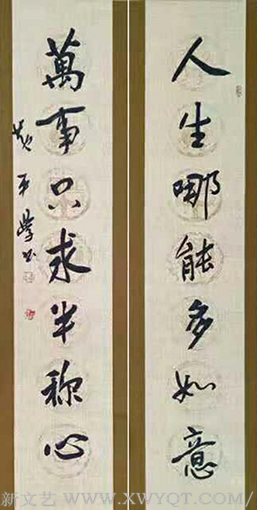 人生哪能多如意
萬事只求半称心
新文艺 WWW.XWYQT.COM/